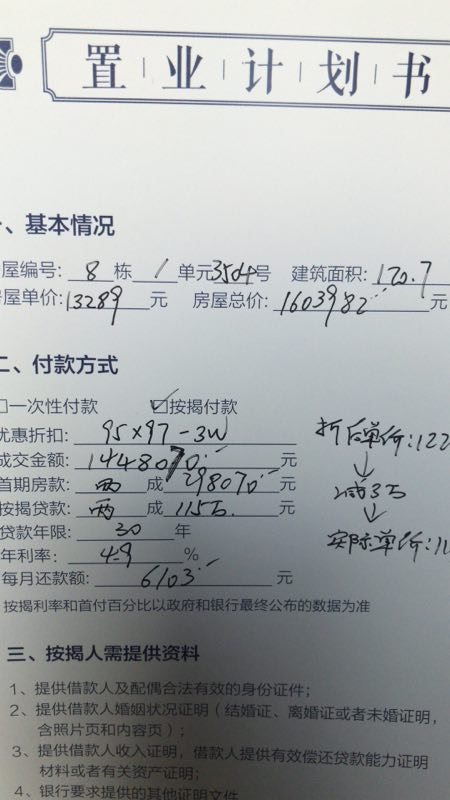 置业计划书
一、基本情况
屋编号: 8 栋 1 单元3504号 建筑面积: 120.7
房屋单价: 13289 元 房屋总价: 1603982 元
二、付款方式
□一次性付款 ☑按揭付款
优惠折扣: 95×97-3W
成交金额: 1448070 元
首期房款: 两 成 298070 元
按揭贷款: 两 成 115万 元
贷款年限: 30 年
年利率: 4.9 %
每月还款额: 6103 元
折后单价:122
↓
减3万
↓
实际单价:11
按揭利率和首付百分比以政府和银行最终公布的数据为准
三、按揭人需提供资料
1、提供借款人及配偶合法有效的身份证件;
2、提供借款人婚姻状况证明(结婚证、离婚证或者未婚证明,
含照片页和内容页);
3、提供借款人收入证明,借款人提供有效偿还贷款能力证明
材料或者有关资产证明;
4、银行要求提供的其他证明文件